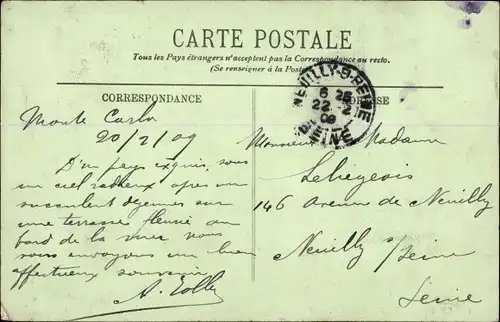 CARTE POSTALE
Tous les Pays étrangers n'acceptent pas la Correspondance au recto.
(Se renseigner à la Poste
CORRESPONDANCE
ADRESSE
NEUILLY-S-SEINE
6 25
22 -2
09
SEINE
Monte Carlo
20/2/09
D'un pays exquis, sous
un ciel radieux apres un
succulent dejeuner sur
une terrasse fleurie au
bord de la mer nous
vous envoyons un bien
affectueux souvenir
Monsieur Madame
Leliegeois
146 Avenue de Neuilly
Neuilly s/Seine
Seine